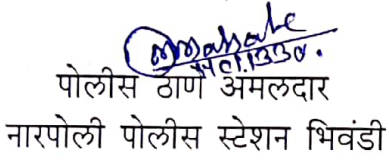 पोलीस ठाणे अमलदार
नारपोली पोलीस स्टेशन भिवंडी